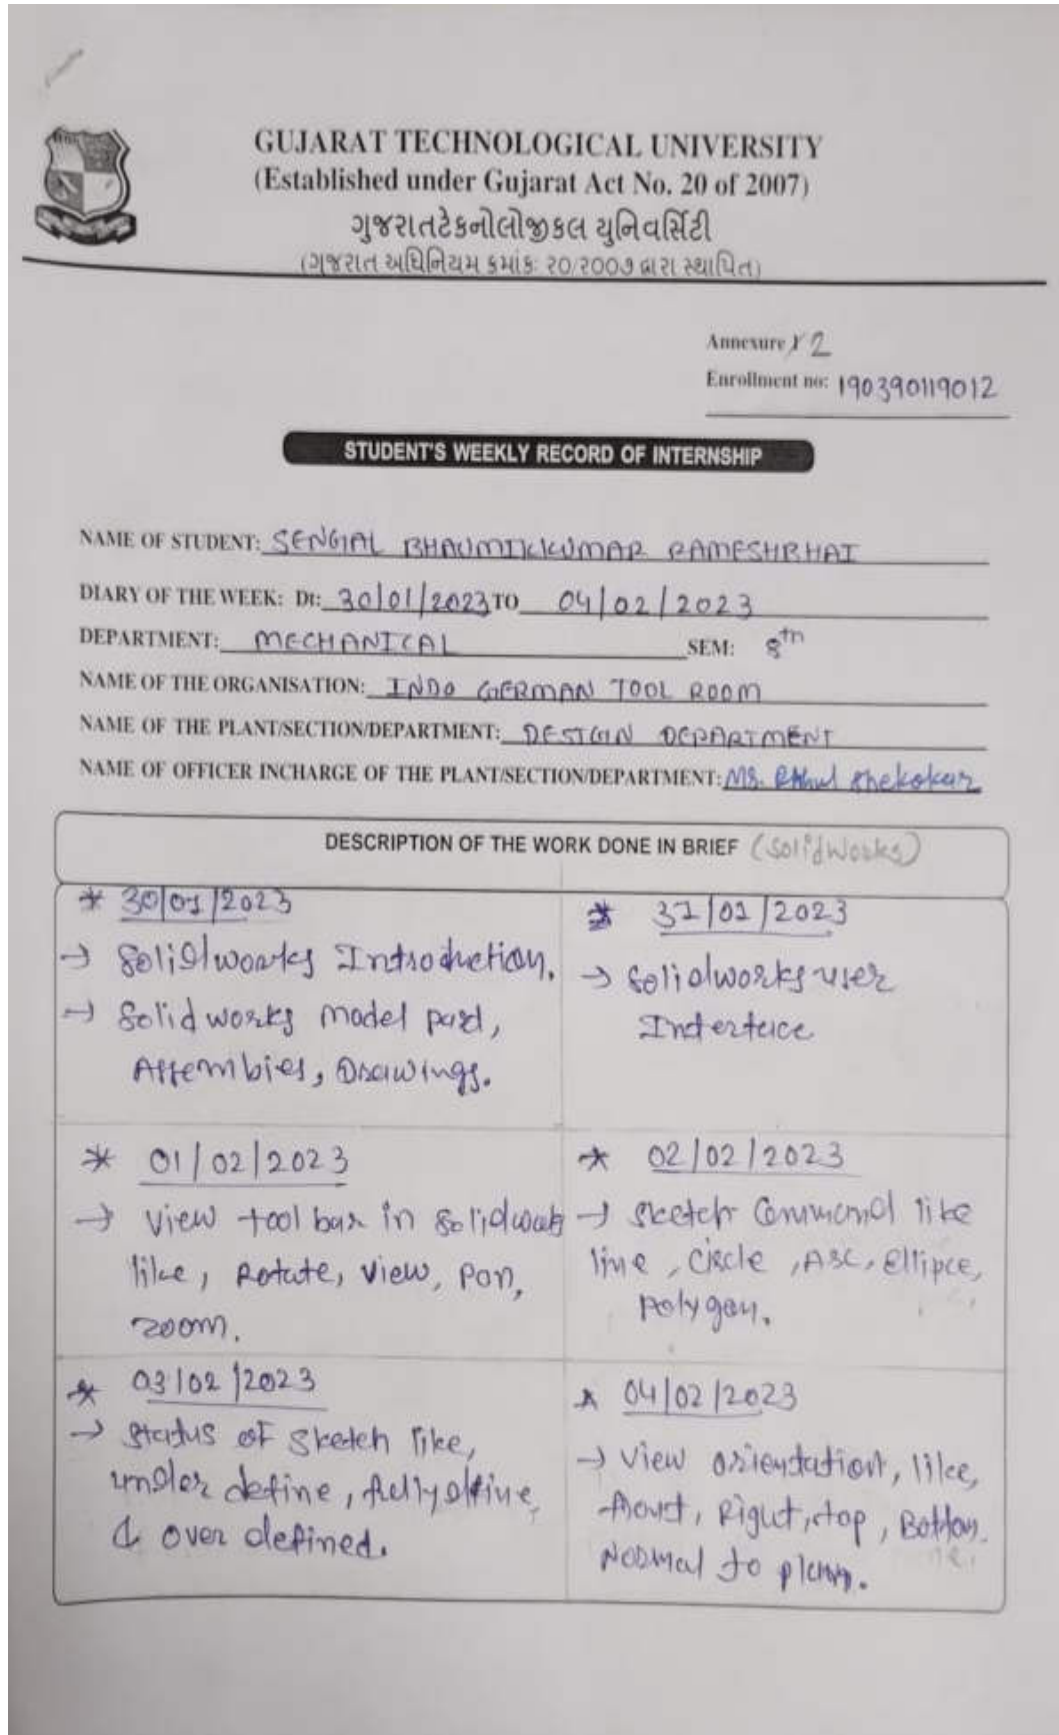 GUJARAT TECHNOLOGICAL UNIVERSITY
(Established under Gujarat Act No. 20 of 2007)
ગુજરાતટેકનોલોજીકલ યુનિવર્સિટી
(ગુજરાત અધિનિયમ ક્રમાંક: ૨૦/૨૦૦૭ દ્વારા સ્થાપિત)
Annexure 2
Enrollment no: 190390119012
STUDENT'S WEEKLY RECORD OF INTERNSHIP
NAME OF STUDENT: SENGAL BHAUMIKKUMAR RAMESHBHAI
DIARY OF THE WEEK: Dt: 30/01/2023 TO 04/02/2023
DEPARTMENT: MECHANICAL SEM: 8th
NAME OF THE ORGANISATION: INDO GERMAN TOOL ROOM
NAME OF THE PLANT/SECTION/DEPARTMENT: DESIGN DEPARTMENT
NAME OF OFFICER INCHARGE OF THE PLANT/SECTION/DEPARTMENT: MS. Shekokar
DESCRIPTION OF THE WORK DONE IN BRIEF (Solidworks)
* 30/01/2023
→ Solidworks Introduction.
→ Solidworks model part,
Assembies, Drawings.
* 31/01/2023
→ Solidworks user
Interface
* 01/02/2023
→ View tool bar in Solidwork
like, Rotate, View, Pan,
zoom.
* 02/02/2023
→ Sketch Command like
line, Circle, Arc, Ellipce,
Polygon.
* 03/02/2023
→ Status of Sketch like,
under define, fully define,
& over defined.
* 04/02/2023
→ View orientation, like,
front, Right, top, Bottom.
Normal to